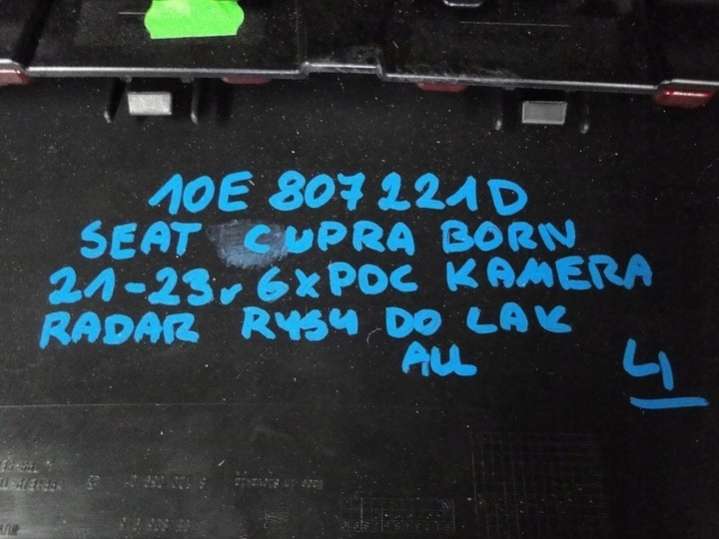 10E 807 221D
SEAT CUPRA BORN
21-23r 6xPDC KAMERA
RADAR RYSY DO LAK
ALL
4